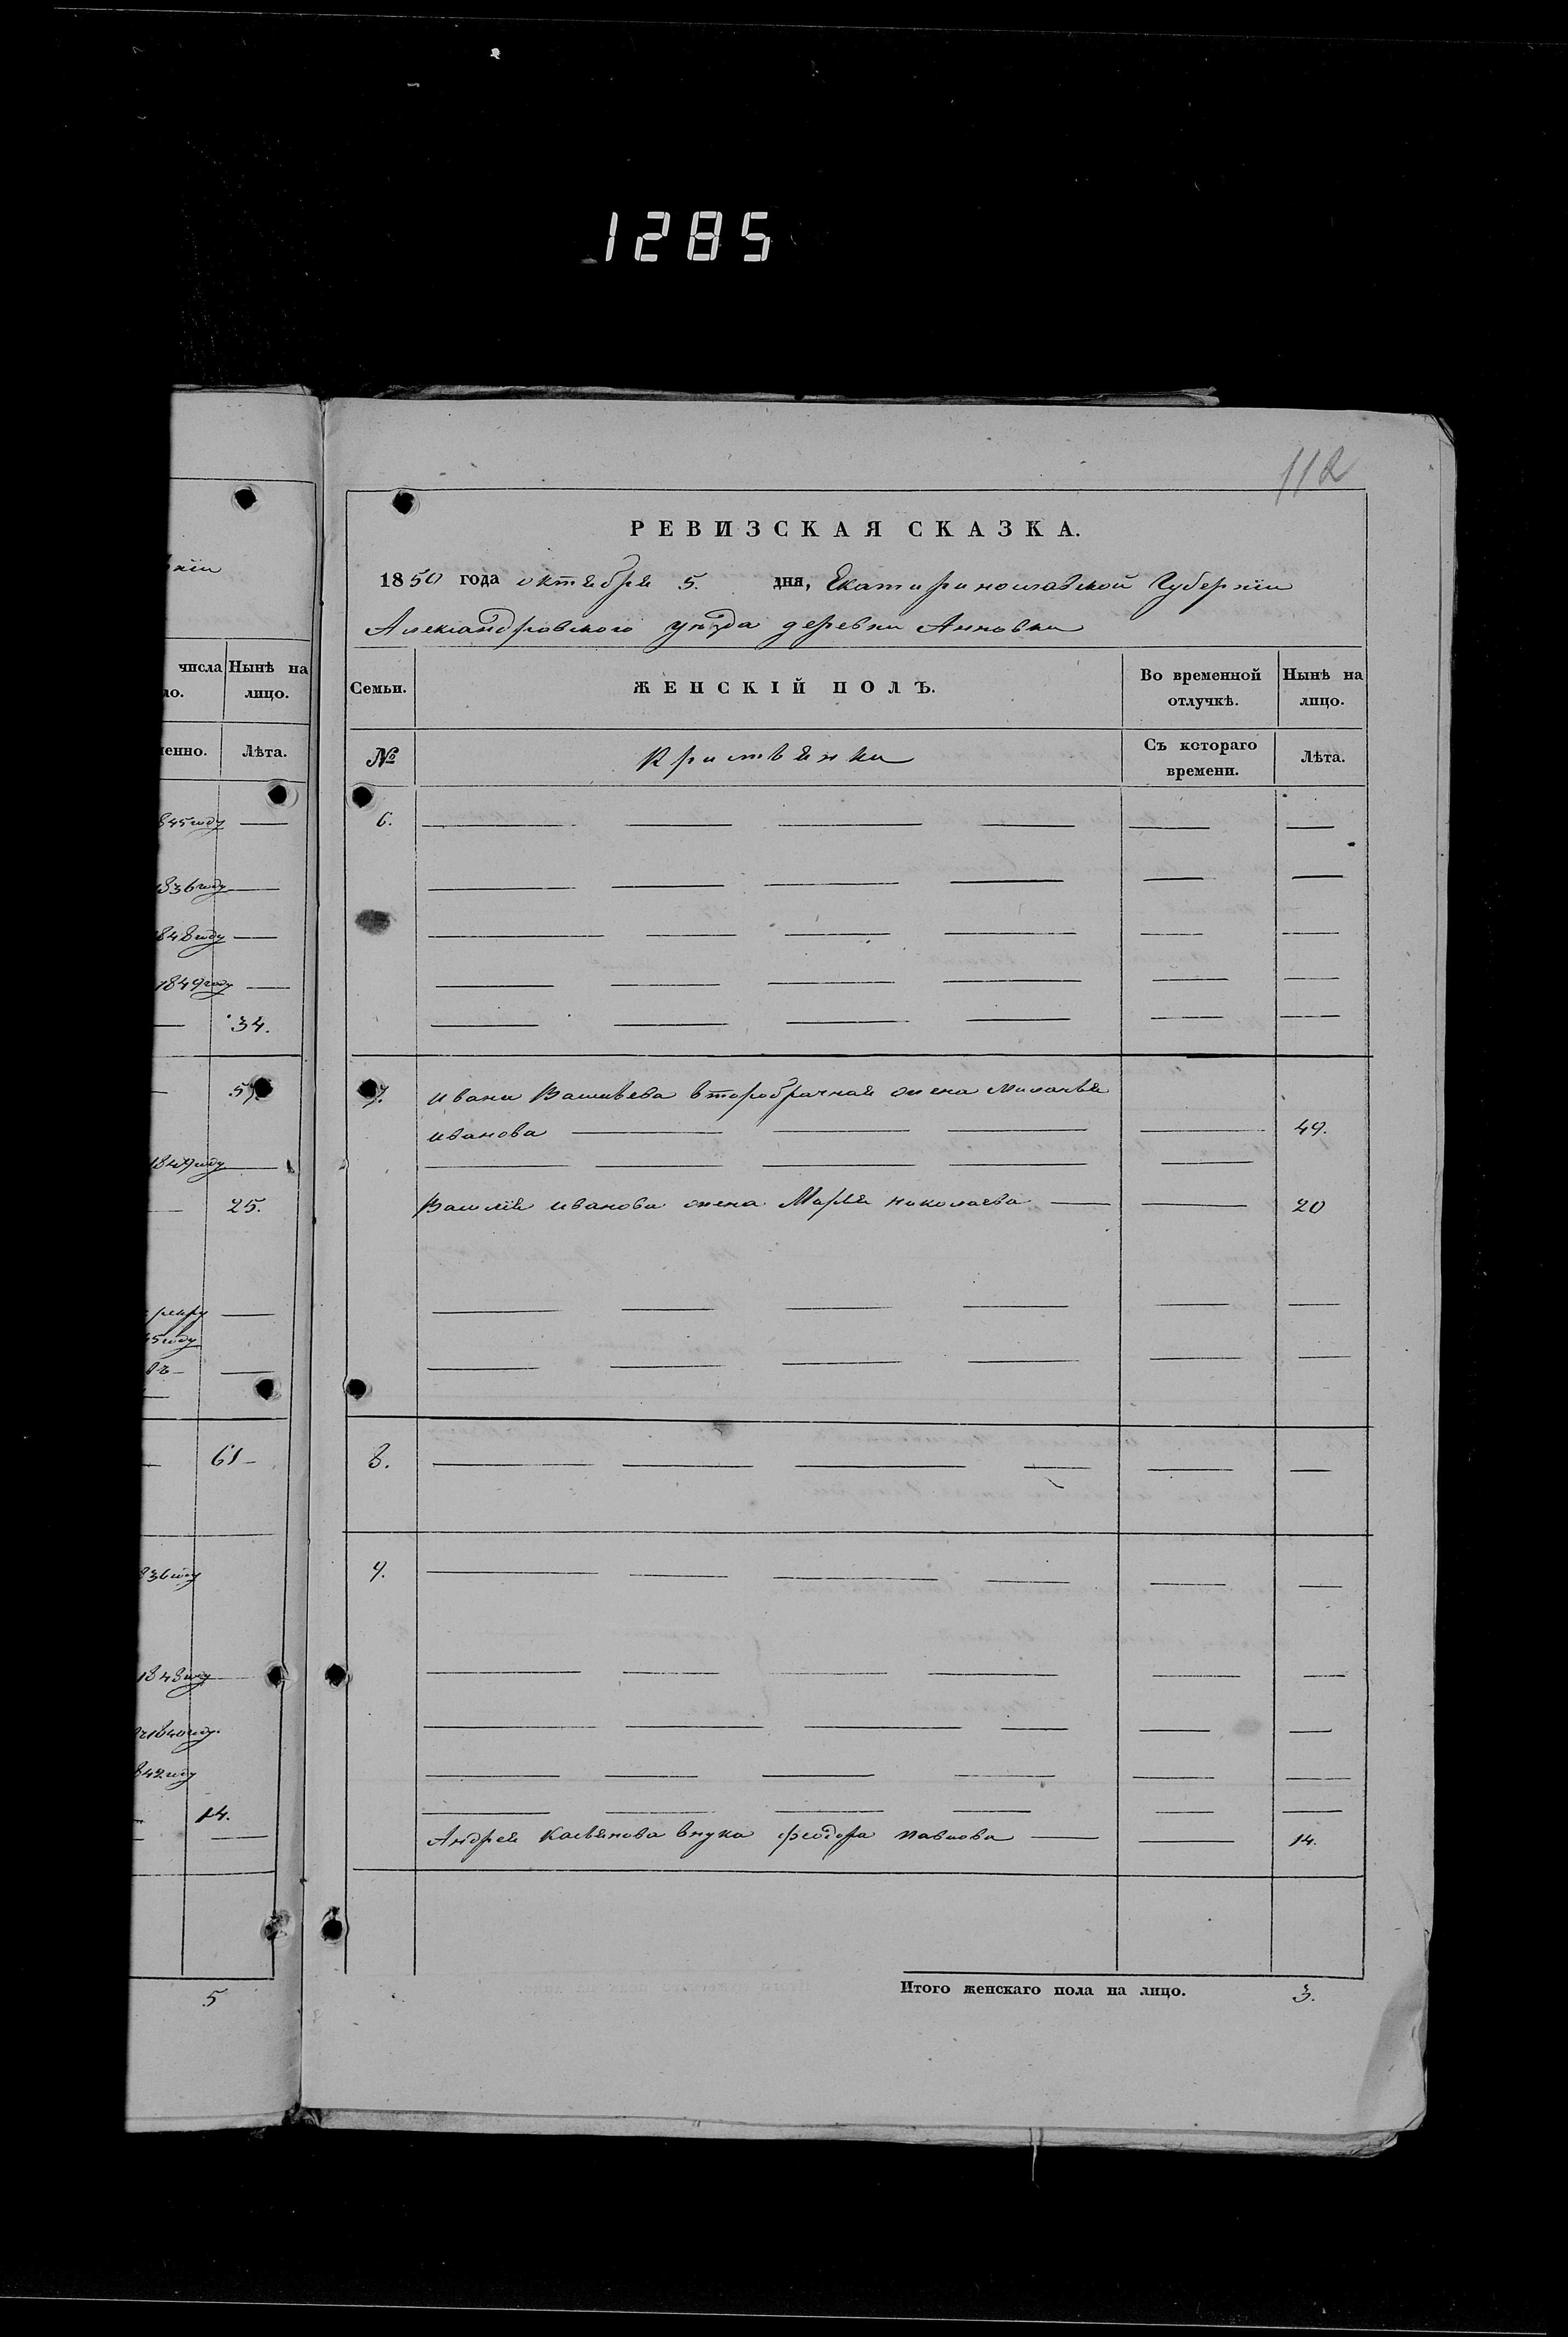 1285
112
аiи
РЕВИЗСКАЯ СКАЗКА.
1850 года октября 5. дня, Екатеринославской Губернiи
Александровского уѣзда деревни Анновки
числа Нынѣ на
ло. лицо.
Семьи. ЖЕНСКІЙ ПОЛЪ. Во временной отлучкѣ. Нынѣ на лицо.
енно. Лѣта.
№ Кристьянки Съ котораго времени. Лѣта.
845 году
6.
1836 году
848 году
1849 году
34.
57.
7. Ивана Васильева второбрачная жена Миланья
Иванова 49.
1849 году
25.
Василiя Иванова жена Марья Николаева 20
рекру
45 году
61
8.
836 году
9.
1843 году
1840 году.
842 году
14.
Андрея Касьянова внука Феодора Павлова 14.
Итого женскаго пола на лицо. 3.
5